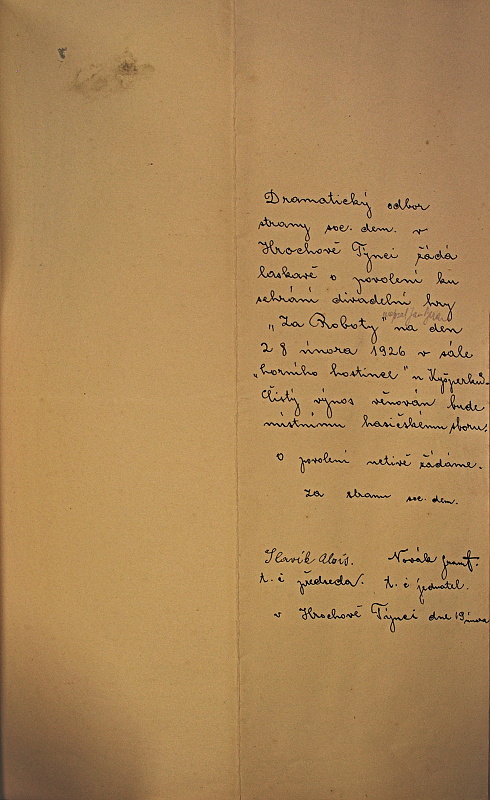 Dramatický odbor
strany soc. dem. v
Hrochově Týnci žádá
laskavě o povolení ku
sehrání divadelní hry
„Za Roboty" na den
28 února 1926 v sále
„horního hostince" u
Čistý výnos věnován bude
místnímu hasičskému sboru.
O povolení uctivě žádáme.
Za stranu soc. dem.
Slavík Alois. Novák
t. č. předseda. t. č. jednatel.
v Hrochově Týnci dne 19 února